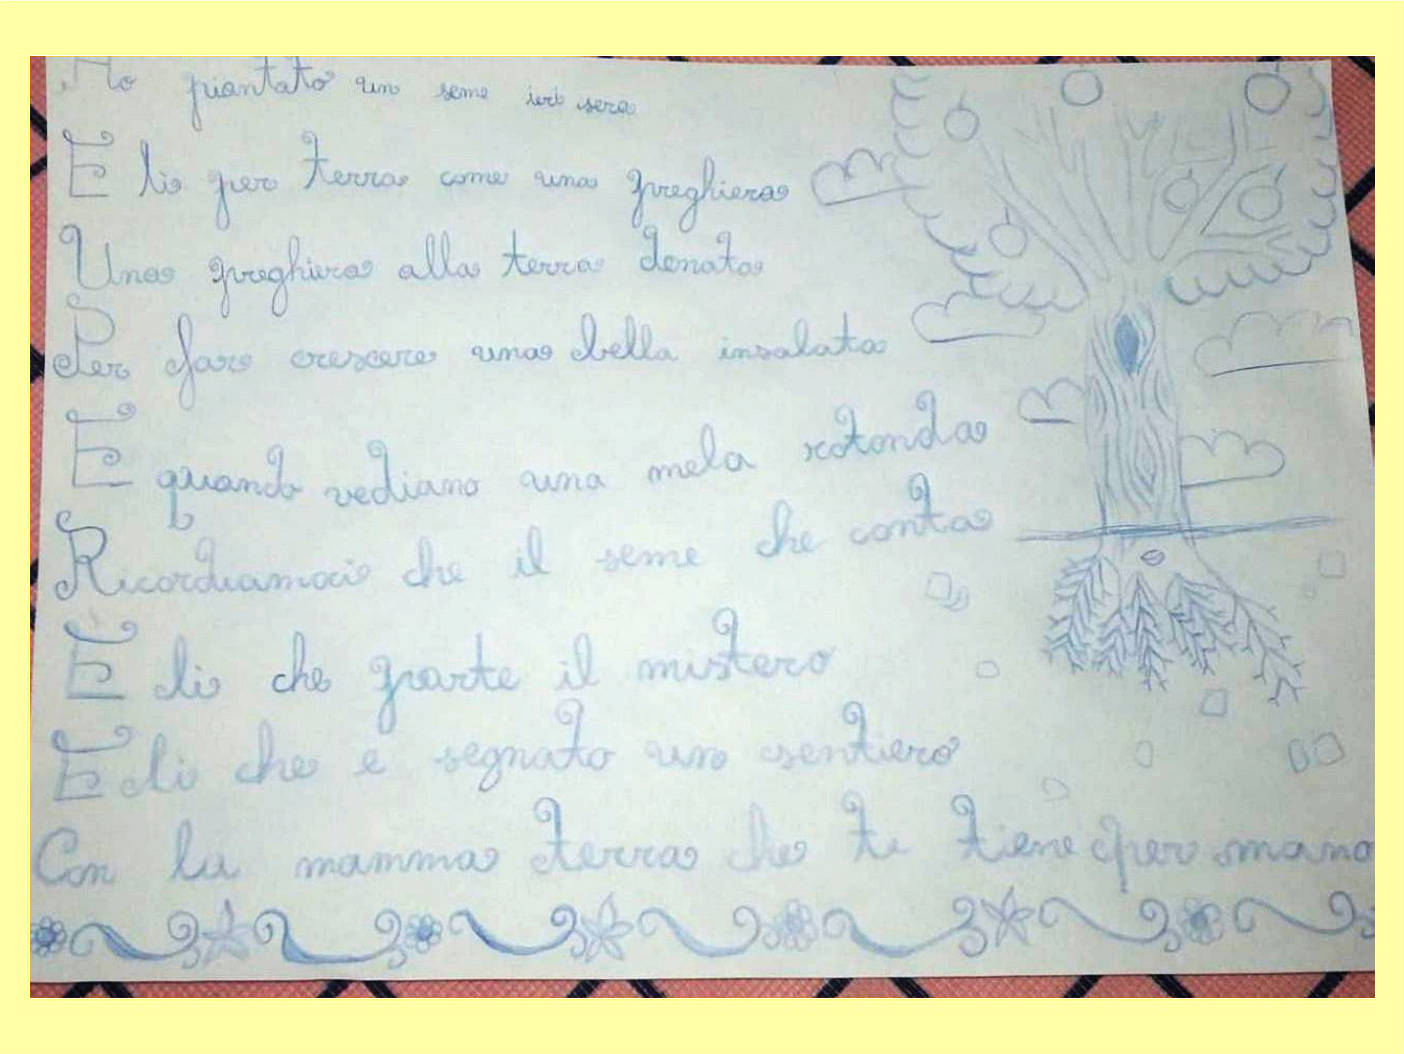 Ho piantato un seme ieri sera
E lì per terra come una preghiera
Una preghiera alla terra donata
Per fare crescere una bella insalata
E quando vediano una mela rotonda
Ricordiamoci che il seme che conta
È lì che parte il mistero
E lì che e segnato un sentiero
Con la mamma terra che ti tiene per mano